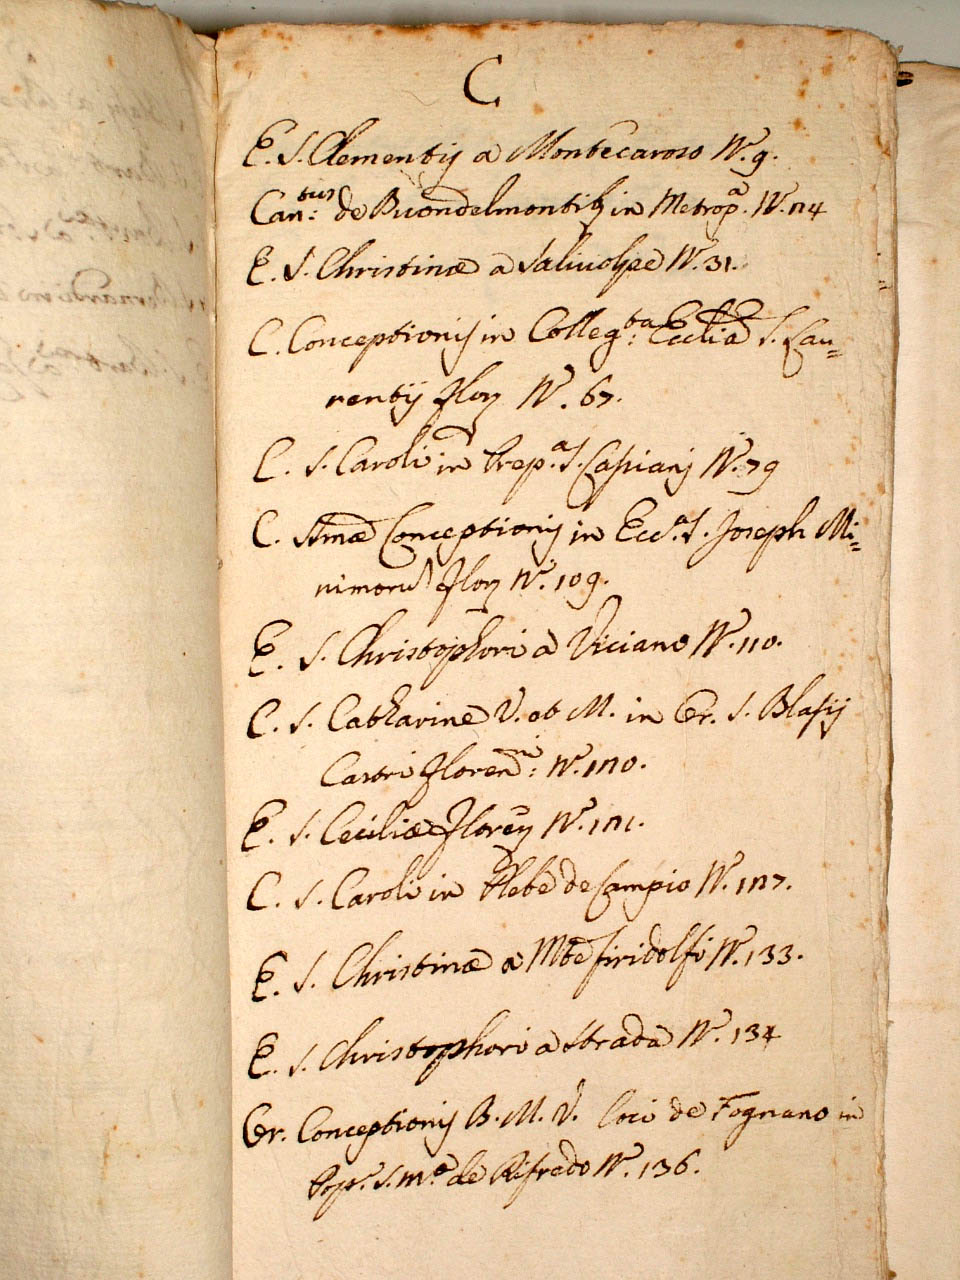 C
E. S. Clementij a Montecaroso N. 9.
Can:tus de Buondelmontibs in Metrop.a N. 114
E. S. Christinæ a Salivolpe N. 31.
C. Conceptionis in Colleg:ta Ecclia S. Lau=
rentij Flor N. 67.
C. S. Caroli in Prep.a S. Casiani N. 79
C. Smæ Conceptionis in Ecc.a S. Joseph Mi=
nimoru Flor N. 109.
E. S. Christophori a Viciano N. 110.
C. S. Catharine V. et M. in Or. S. Blasij
Castri Floren:ni N. 120.
E. S. Ceciliæ Floren N. 121.
C. S. Caroli in Plebe de Campio N. 127.
E. S. Christinæ a Mte Firidolfi N. 133.
E. S. Christophori a Strada N. 134
Or. Conceptionis B. M. V. loci de Fognano in
Pop. S. M.e de Rifredo N. 136.